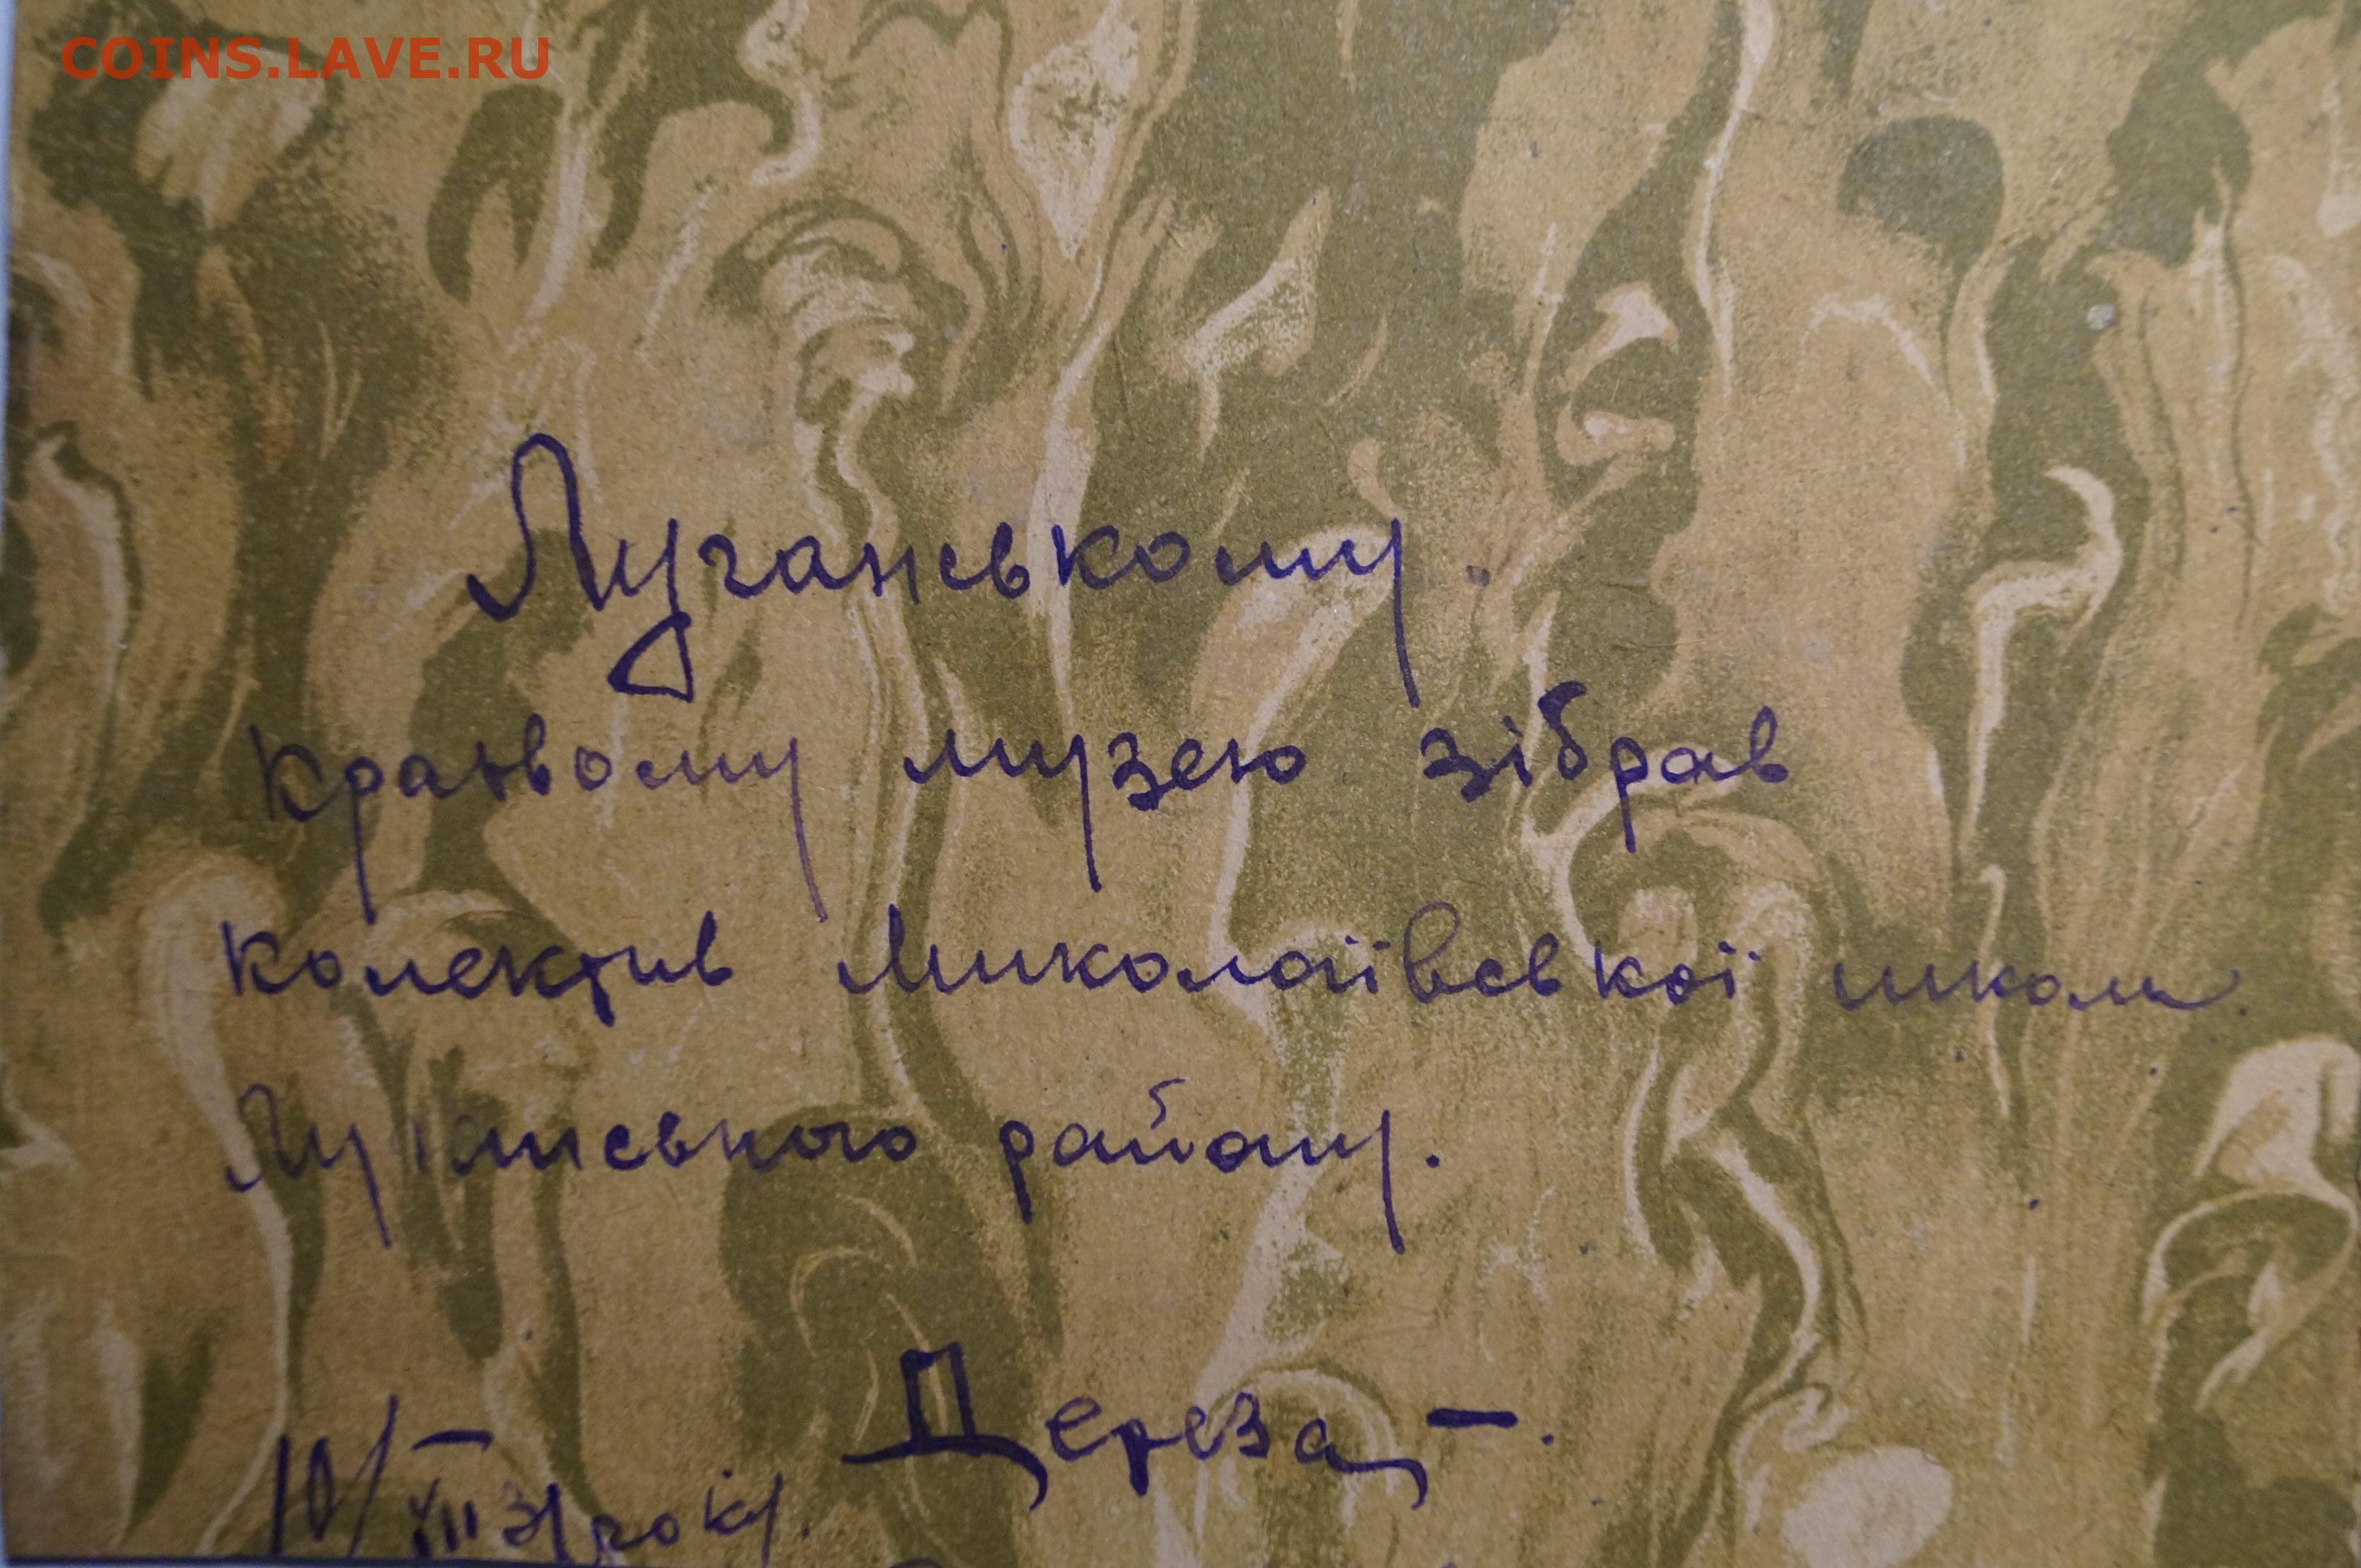 COINS.LAVE.RU
Луганському.
краєвому музею зібрав
колектив Миколаївської школи
Луганського району.
Дереза –.
10/XII 31 року.